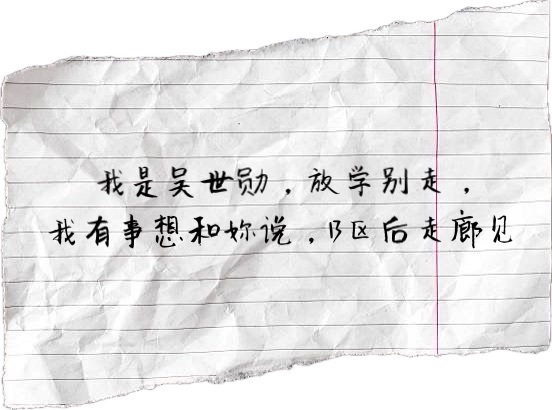 我是吴世勋，放学别走，
我有事想和妳说，B区后走廊见